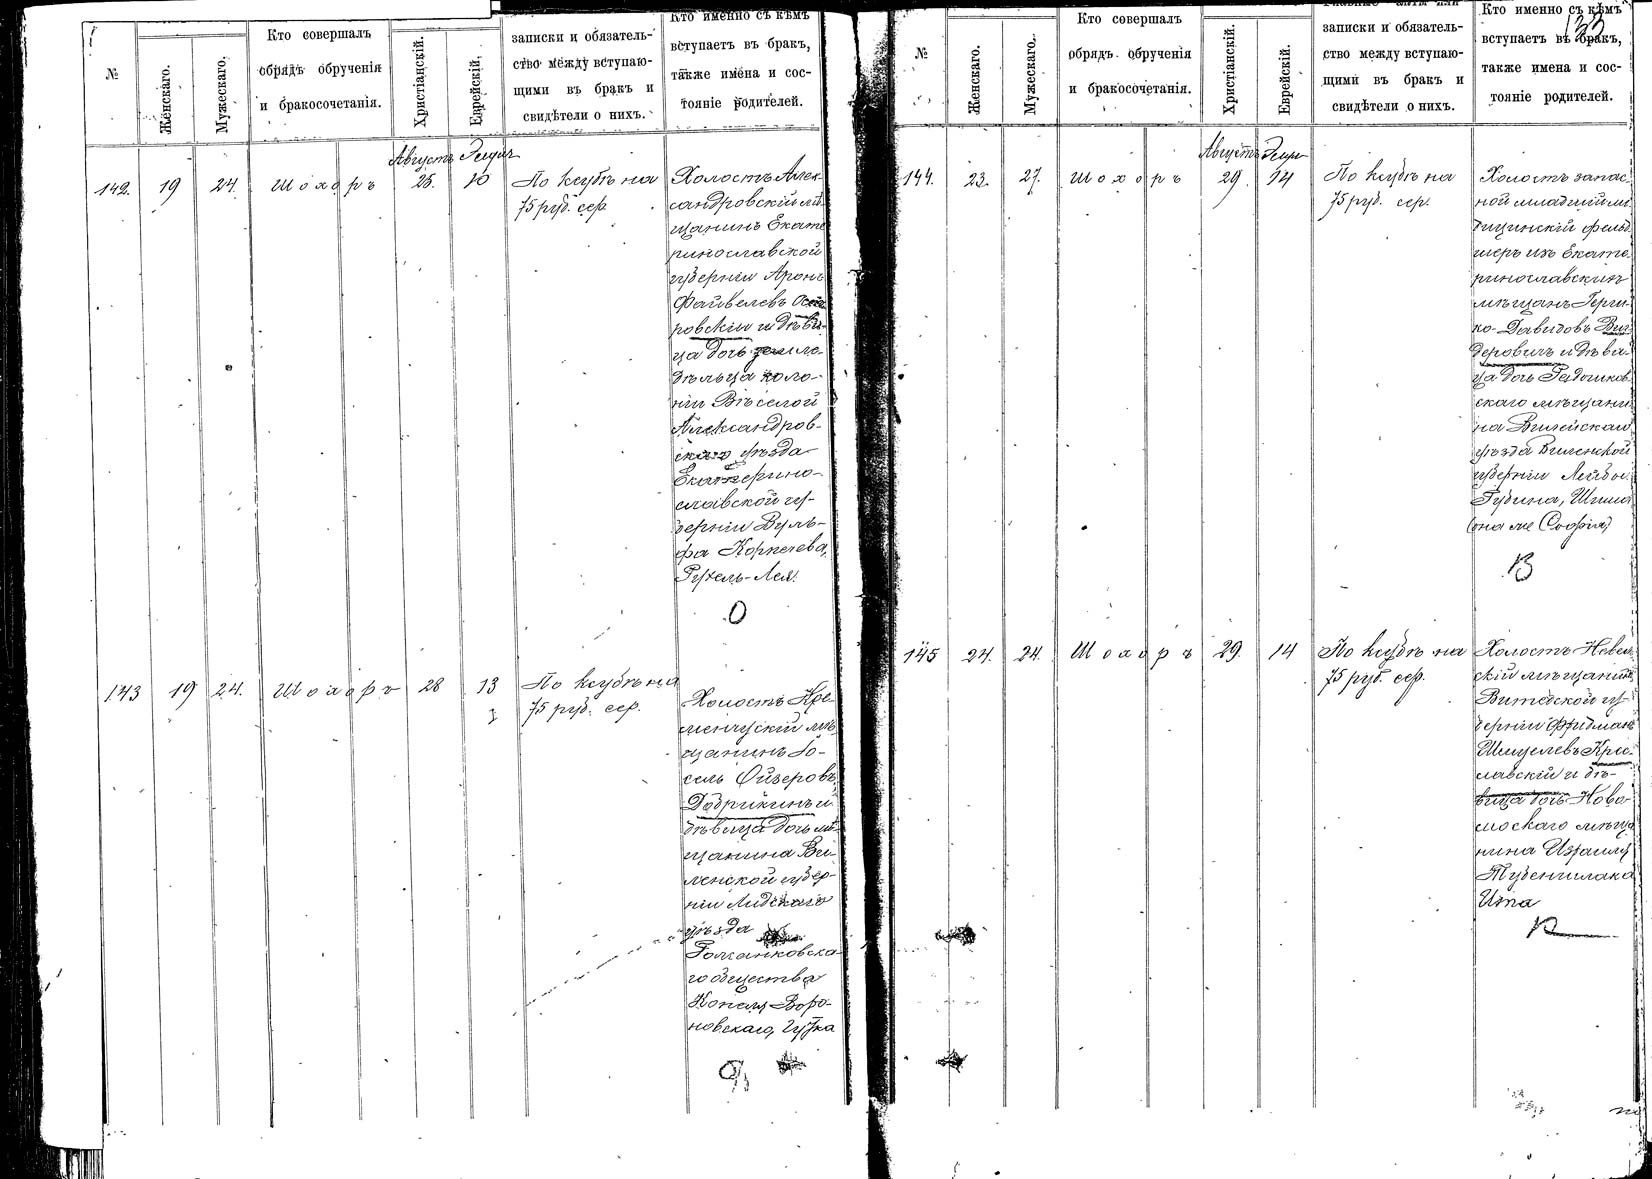 №
Женскаго.
Мужескаго.
Кто совершалъ
обрядъ обрученія
и бракосочетанія.
Христіанскій.
Еврейскій.
записки и обязатель-
ство между вступаю-
щими въ бракъ и
свидѣтели о нихъ.
Кто именно съ кѣмъ
вступаетъ въ бракъ,
также имена и сос-
тояніе родителей.
Августъ
142. 19 24. Шохоръ 25. 10
По ксубѣ на
75 руб. сер.
Холостъ Алек-
сандровскій мѣ
щанинъ Екате
ринославской
губерніи Аронъ
Файвелевъ
ровскій и дѣви-
ца дочь земле-
дѣльца коло-
ніи Вѣселой
Александров-
скаго уѣзда
Екатерино-
славской гу-
берніи Вуль-
фа
Рухель-Лея.
О
143 19 24. Шохоръ 28 13
По ксубѣ на
75 руб. сер.
Холостъ Кре-
менчускій мѣ
щанинъ Іо-
сель Ойзеровъ
Добрикинъ и
дѣвица дочь мѣ-
щанина Ви-
ленской губер-
ніи Лидскаго
уѣзда
го общества
Копеля Воро-
новскаго,
№
Женскаго.
Мужескаго.
Кто совершалъ
обрядъ обрученія
и бракосочетанія.
Христіанскій.
Еврейскій.
записки и обязатель-
ство между вступаю-
щими въ бракъ и
свидѣтели о нихъ.
Кто именно съ кѣмъ
вступаетъ въ бракъ,
также имена и сос-
тояніе родителей.
Августъ
144. 23. 27. Шохоръ 29. 14
По ксубѣ на
75 руб. сер.
Холостъ запас-
ной младшій ме
дицинскій фельд
шеръ изъ Екате
ринославскихъ
мѣщанъ Герш-
ко-Давидовъ
деровичъ и дѣви-
ца дочь Радошков
скаго мѣщани
на Вилейскаго
уѣзда Виленской
губерніи Лейбы
Рубина,
(она же Софія)
В
145 24. 24. Шохоръ 29. 14
По ксубѣ на
75 руб. сер.
Холостъ Невель
скій мѣщанинъ
Витебской гу-
берніи Фридманъ
Шмуелевъ Крас-
лавскій и дѣ-
вица дочь Ново-
скаго мѣща
нина Израиля
Ита
К